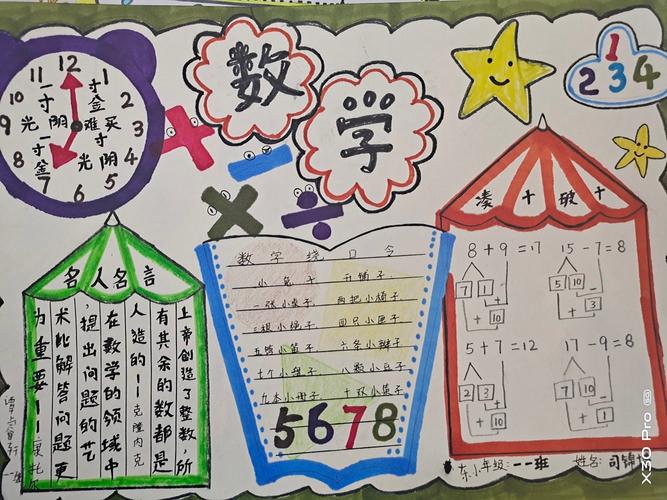 11 12 1
10 2
9 3
8 4
7 6 5
一寸光阴一寸金
寸金难买寸光阴
数学
1
2 3 4
名人名言
上帝创造了整数,所
有其余的数都是
人造的——克隆内克
在数学的领域中
,提出问题的艺
术比解答问题更
为重要——康托尔
数字绕口令
小兔子 开铺子
一张小桌子 两把小椅子
三根小绳子 四只小匣子
五管小笛子 六条小辫子
七个小瓶子 八颗小豆子
九本小册子 十双小筷子
5678
凑十破十
8+9=17 15-7=8
7 1 5 10 -
+ 10 + 3
5+7=12 17-9=8
2 3 7 10 -
+ 10 + 1
东小年级:一一班 姓名:司锦
X30 Pro